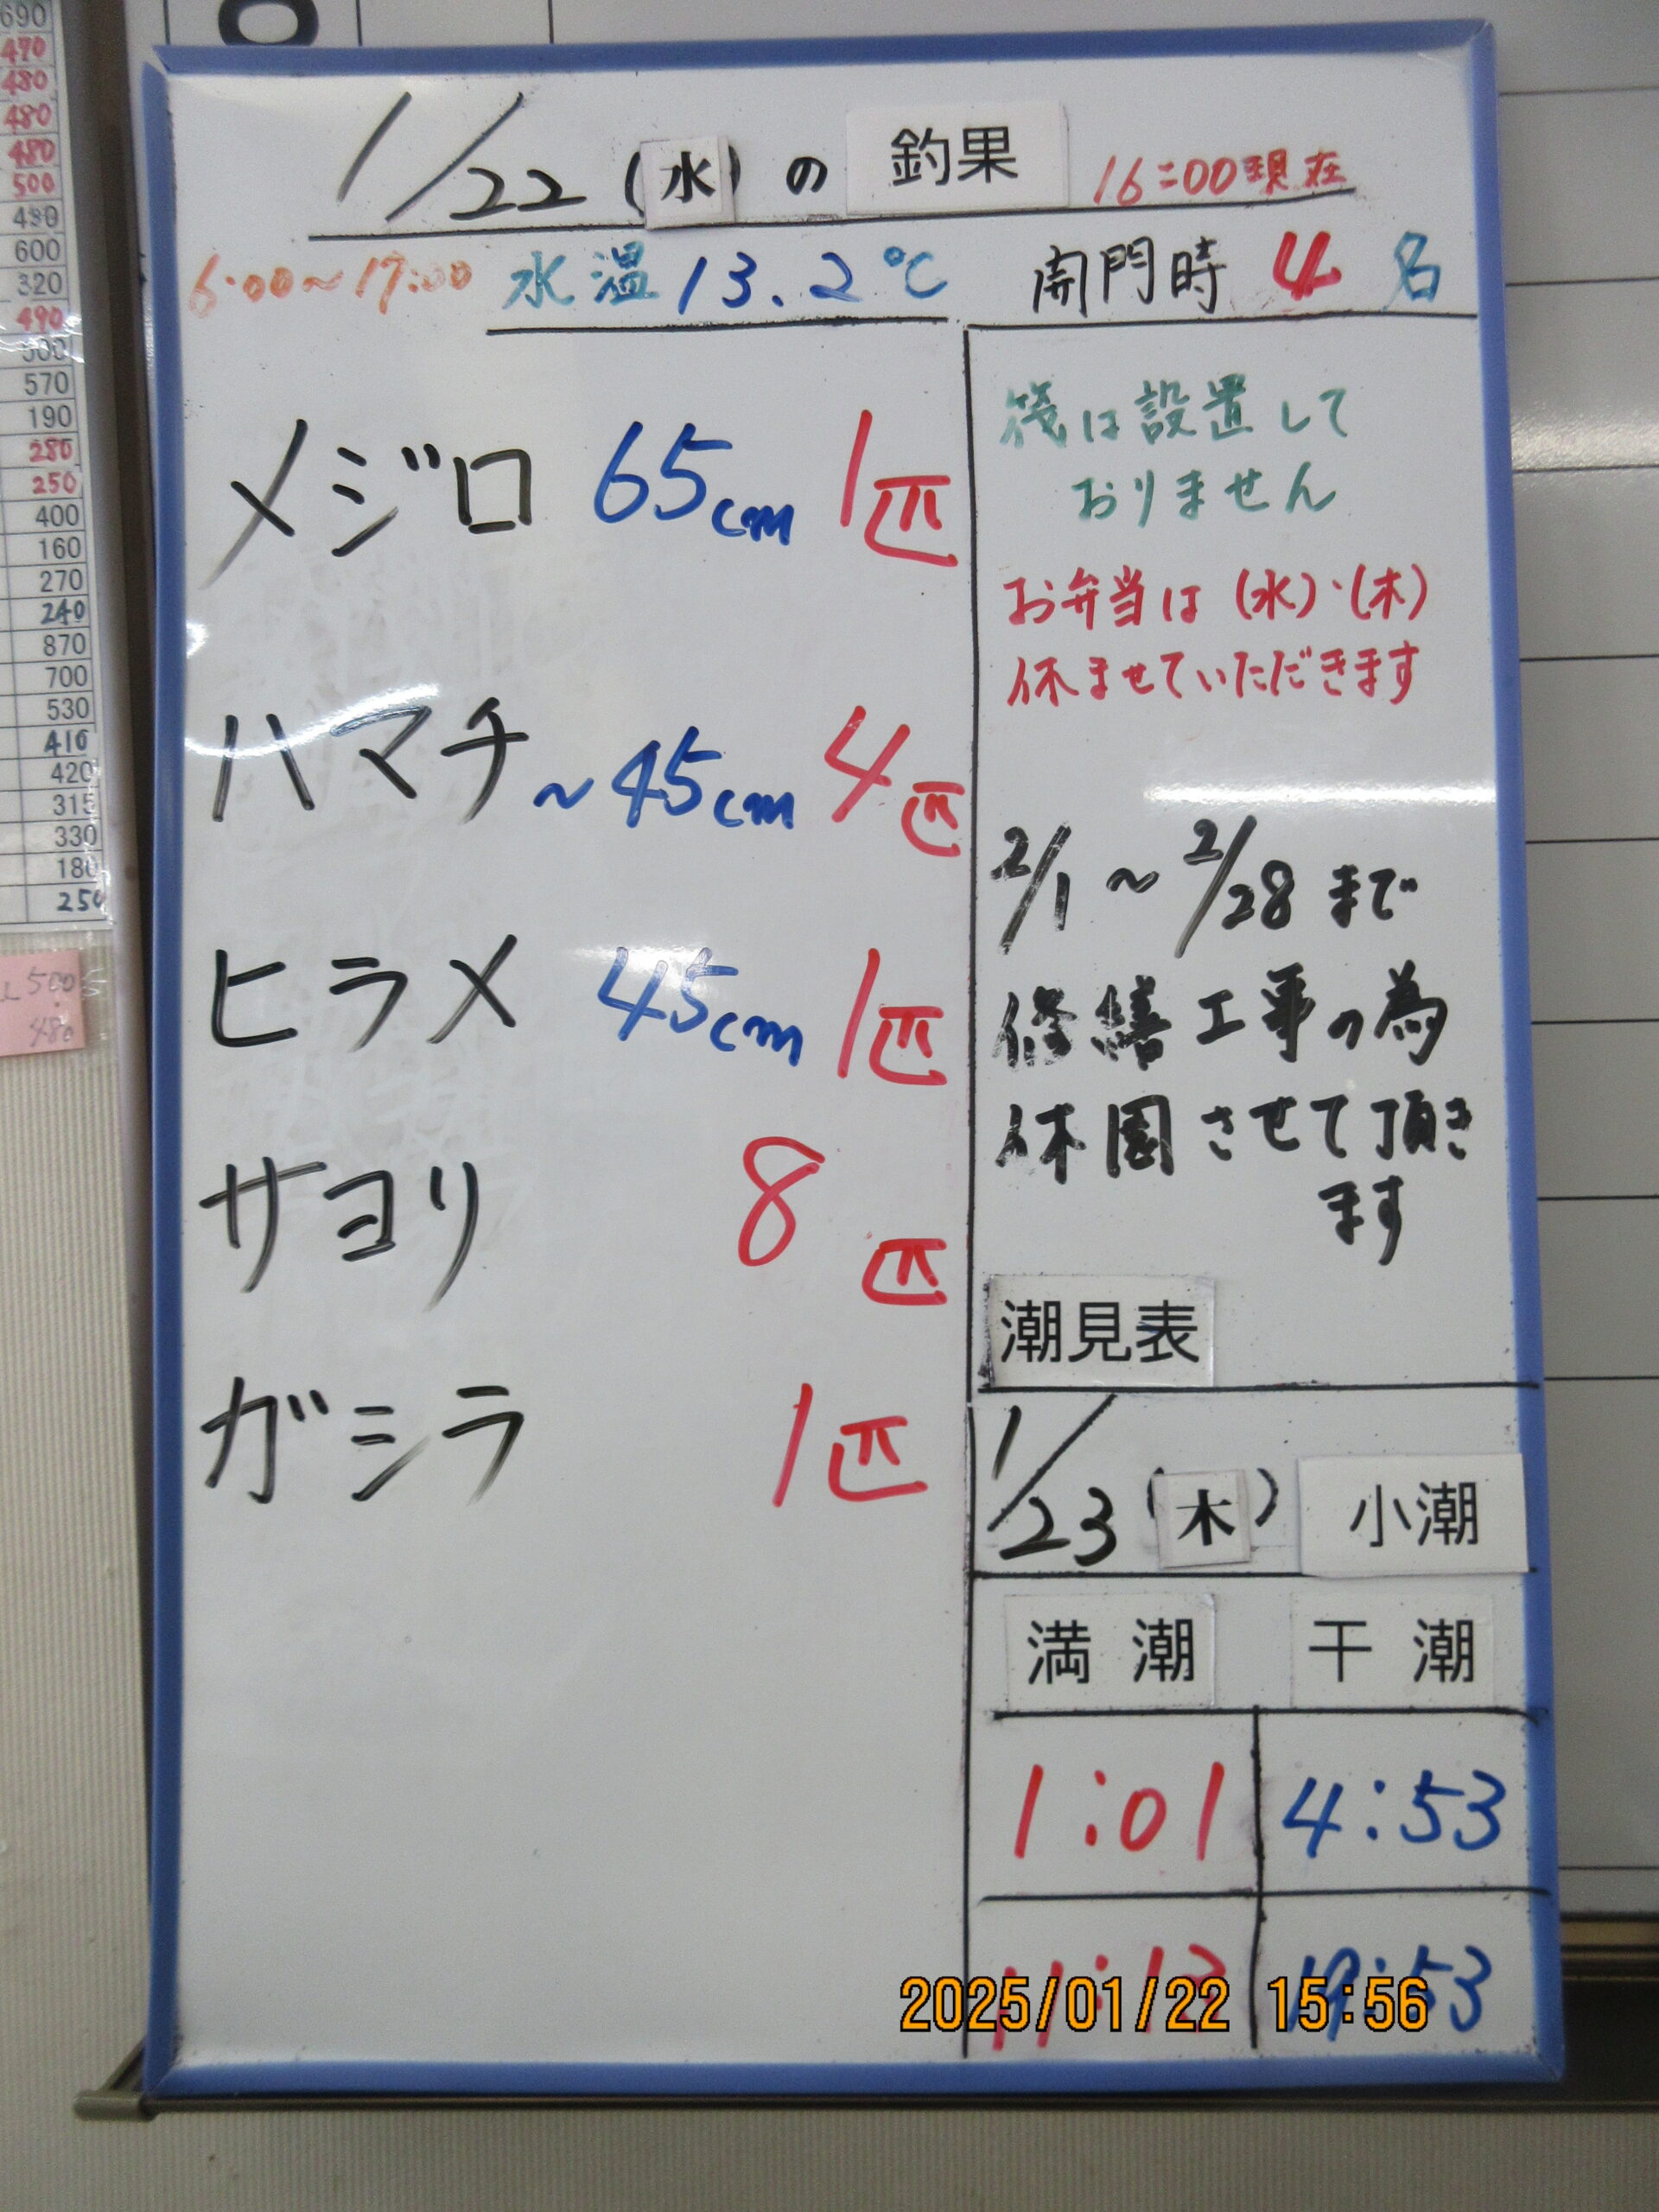 1/22(水)の釣果 16:00現在
6:00~17:00 水温13.2℃ 開門時 4名
メジロ 65cm 1匹
ハマチ ~45cm 4匹
ヒラメ 45cm 1匹
サヨリ 8匹
ガシラ 1匹
筏は設置して
おりません
お弁当は(水)・(木)
休ませていただきます
2/1~2/28まで
修繕工事の為
休園させて頂き
ます
潮見表
1/23(木) 小潮
満潮 干潮
1:01 4:53
2025/01/22 15:56
690
470
480
480
480
500
490
600
320
490
500
570
190
280
250
400
160
270
240
870
700
530
410
420
315
330
180
250
500
480